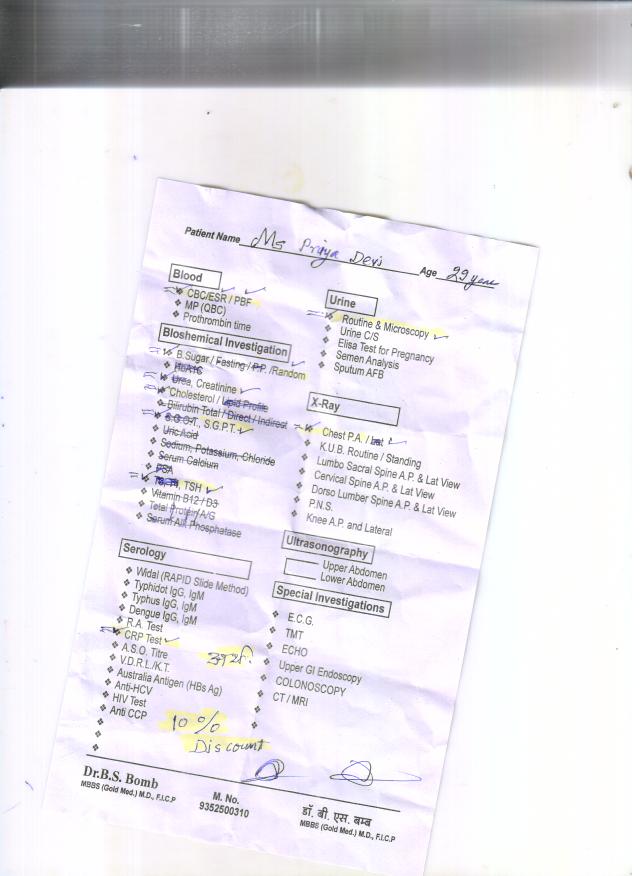 Patient Name Ms Priya Devi Age 29 year
Blood
CBC/ESR / PBF
MP (QBC)
Prothrombin time
Bioshemical Investigation
B.Sugar / Fasting / P.P. /Random
HbA1C
Urea, Creatinine
Cholesterol / Lipid Profile
Bilirubin Total / Direct / Indirect
S.G.O.T., S.G.P.T.
Uric Acid
Sodium, Potassium, Chloride
Serum Calcium
PSA
T3, T4, TSH
Vitamin B12 / D3
Total Protein/A/G
Serum Alk Phosphatase
Serology
Widal (RAPID Slide Method)
Typhidot IgG, IgM
Typhus IgG, IgM
Dengue IgG, IgM
R.A. Test
CRP Test
A.S.O. Titre
V.D.R.L/K.T.
Australia Antigen (HBs Ag)
Anti-HCV
HIV Test
Anti CCP
10 %
Discount
Urine
Routine & Microscopy
Urine C/S
Elisa Test for Pregnancy
Semen Analysis
Sputum AFB
X-Ray
Chest P.A. / Lat
K.U.B. Routine / Standing
Lumbo Sacral Spine A.P. & Lat View
Cervical Spine A.P. & Lat View
Dorso Lumber Spine A.P. & Lat View
P.N.S.
Knee A.P. and Lateral
Ultrasonography
Upper Abdomen
Lower Abdomen
Special Investigations
E.C.G.
TMT
ECHO
Upper GI Endoscopy
COLONOSCOPY
CT / MRI
Dr.B.S. Bomb
MBBS (Gold Med.) M.D., F.I.C.P
M. No.
9352500310
डॉ. बी. एस. बम्ब
MBBS (Gold Med.) M.D., F.I.C.P